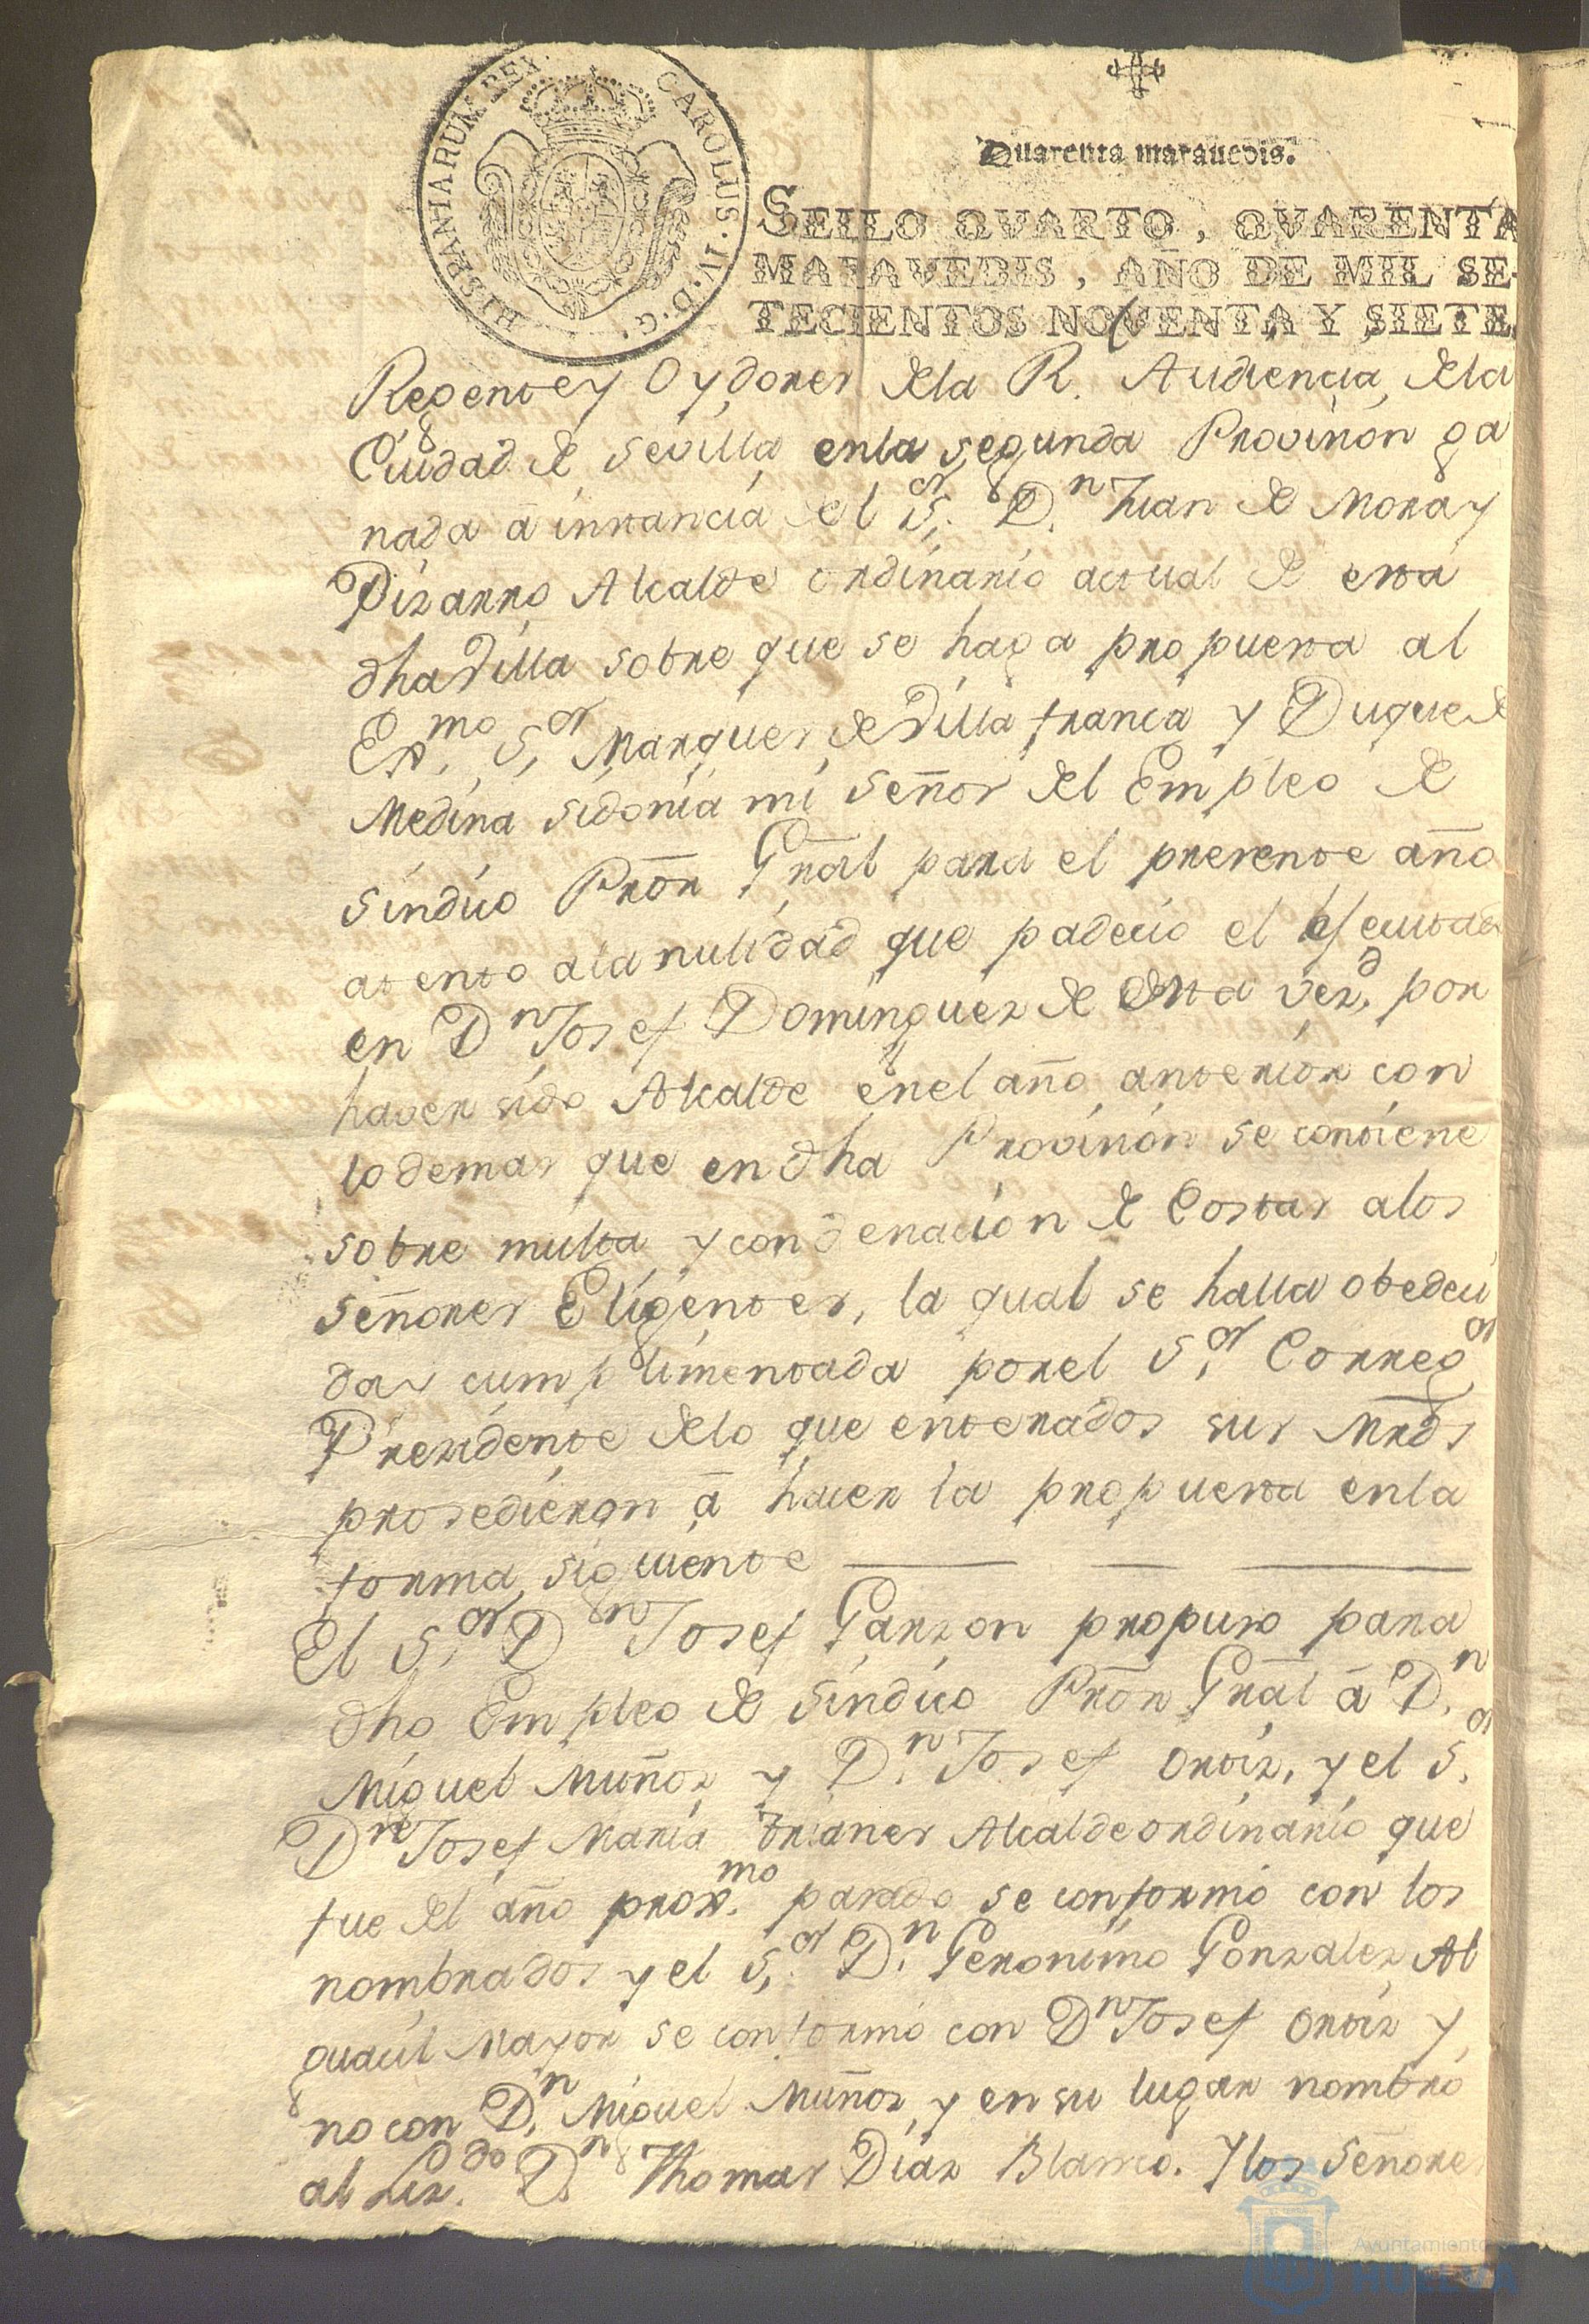 HISPANIARUM REX. CAROLUS. IV. D. G.
Quarenta marauedis.
SELLO QVARTO, QVARENTA
MARAVEDIS, AÑO DE MIL SE-
TECIENTOS NOVENTA Y SIETE.
Regente y Oydores dela R. Audiencia dela
Ciudad de Sevilla enla segunda Provision ga
nada â instancia del S.or D.n Juan de Mora y
Pizarro Alcalde ordinario actual de esta
dha Villa sobre que se haga propuesta al
Ex.mo S.or Marques de Villafranca y Duque de
Medina sidonia mi señor del Empleo de
Sindico Prōr Grāl para el presente año
atento ala nulidad que padecio el efecutado
en D.n Josef Dominguez de esta vez.d por
haver sido Alcalde en el año anterior con
lo demas que en dha Provision se contiene
sobre multa y condenacion de Costas alos
señores Eligentes, la qual se halla obedeci
da y cumplimentada por el S.or Correg.or
Presidente delo que enterados sus Mrds
prosedieron â hacer la propuesta enla
forma siguiente
El S.or D.n Josef Garzon propuso para
dho Empleo de Sindico Prōr Grāl â D.n
Miguel Muñoz y D.n Josef Ortiz, y el S.or
D.n Josef Maria Trianes Alcalde ordinario que
fue del año prox.mo pasado se conformó con los
nombrados y el S.or D.n Geronimo Gonzalez Al
guacil Mayor se conformó con D.n Josef Ortiz y
no con D.n Miguel Muñoz y en su lugar nombró
al Liz.do D.n Thomas Diaz Blanco. Y los señores
Ayuntamiento
HUELVA